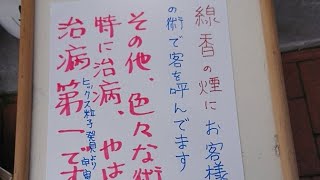 線香の煙にお客様
の術で客を呼んでます
その他、色々な術
特に治病、やは
ヒックス粒子発見より
治病第一です